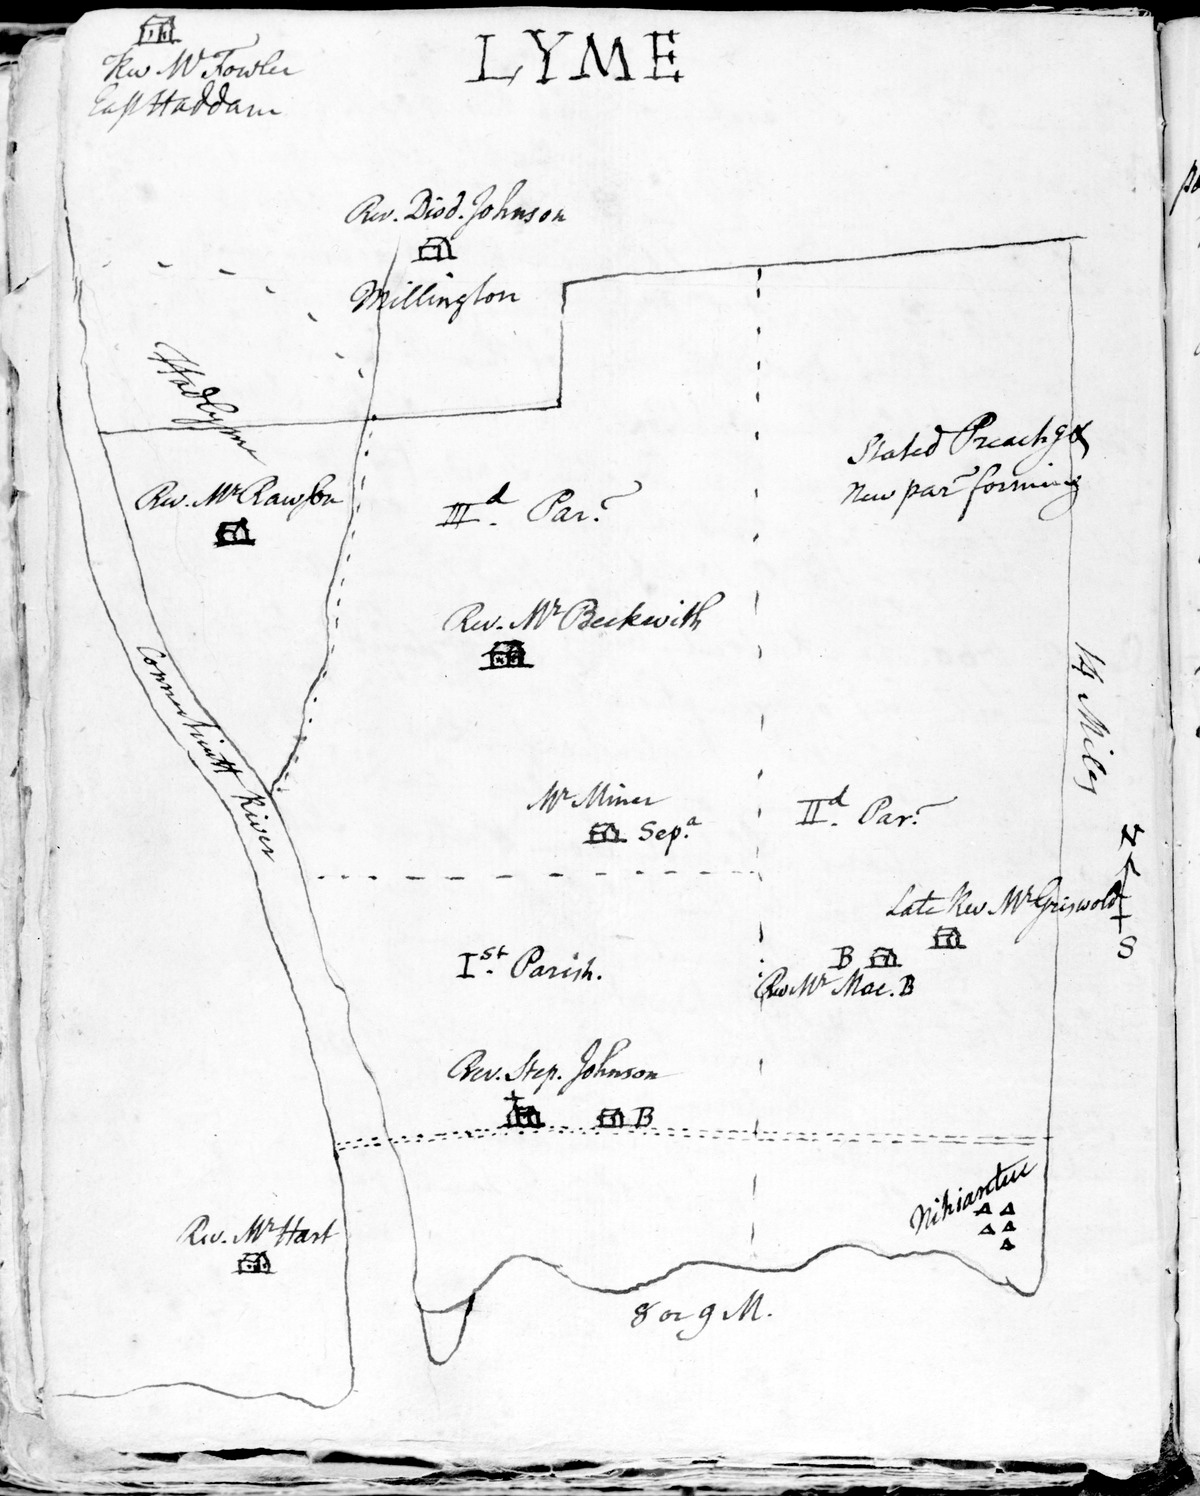 LYME
Rev. Mr Fowler
East Haddam
Rev. Diod. Johnson
Millington
Hadlyme
Stated Preachg &
New par forming
Rev. Mr Rawson
IIId. Par.
Rev. Mr Beckwith
14 Miles
Connecticutt River
Mr Miner
Sep.a
IId. Par.
N
S
Late Rev Mr Griswold
B
Rev Mr Mac. B
Ist. Parish.
Rev. Step. Johnson
B
Nihiantuc
Rev. Mr Hart
8 or 9 M.